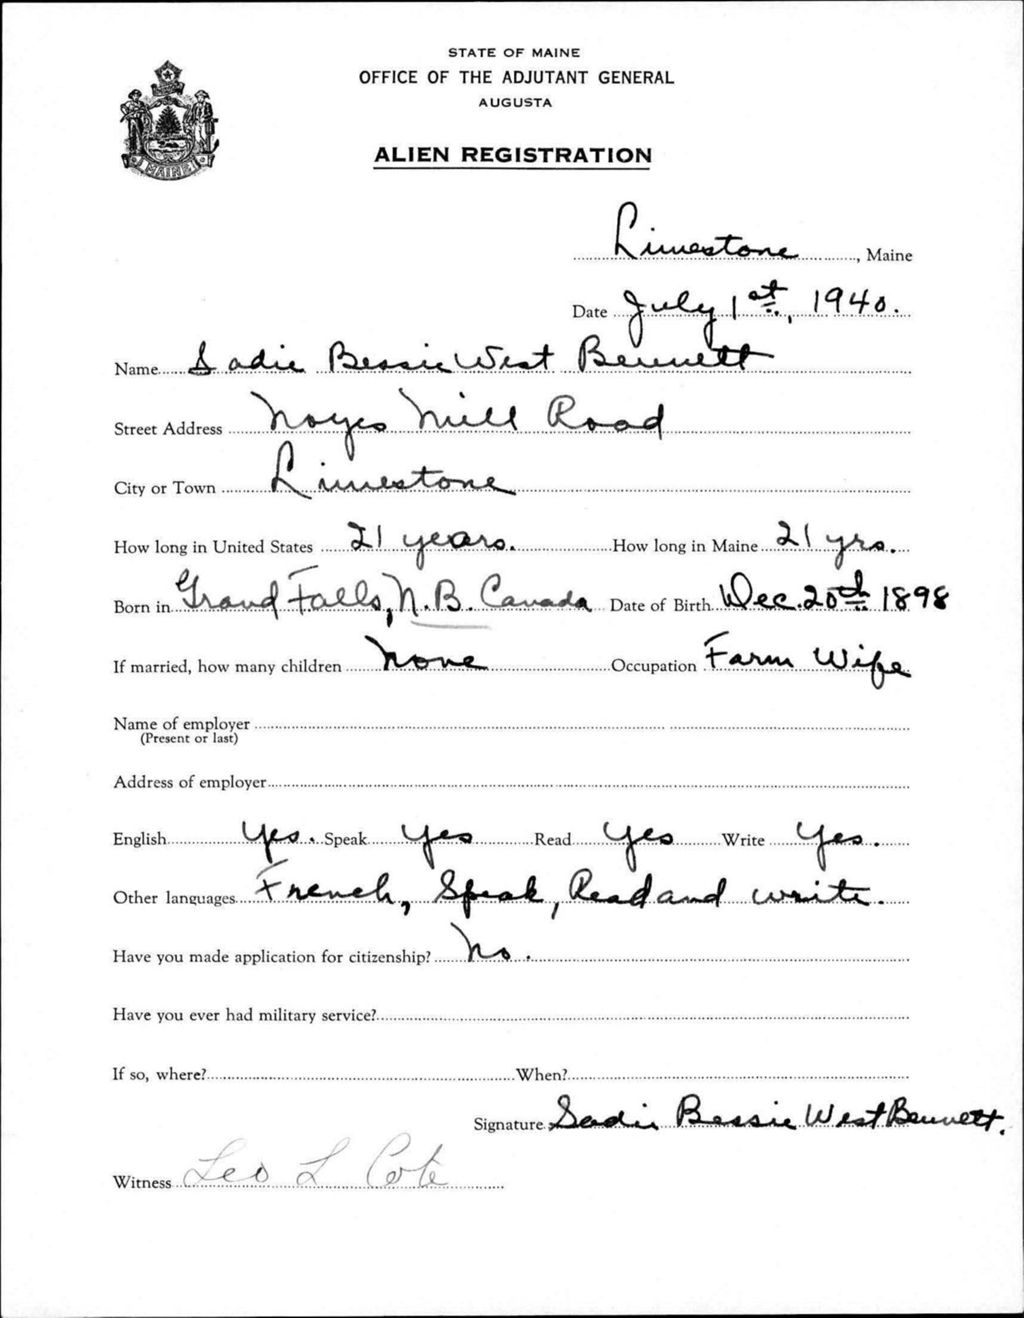 STATE OF MAINE
OFFICE OF THE ADJUTANT GENERAL
AUGUSTA
ALIEN REGISTRATION
MAINE
Limestone, Maine
Date July 1st., 1940.
Name Sadie Bessie West Bennett
Street Address Noyes Mill Road
City or Town Limestone
How long in United States 21 years. How long in Maine 21 yrs.
Born in Grand Falls, N.B. Canada Date of Birth Dec. 20th 1898
If married, how many children None Occupation Farm Wife
Name of employer
(Present or last)
Address of employer
English Yes. Speak Yes Read Yes Write Yes.
Other languages French, Speak, Read and write.
Have you made application for citizenship? No.
Have you ever had military service?
If so, where? When?
Signature Sadie Bessie West Bennett.
Witness Leo L Cote